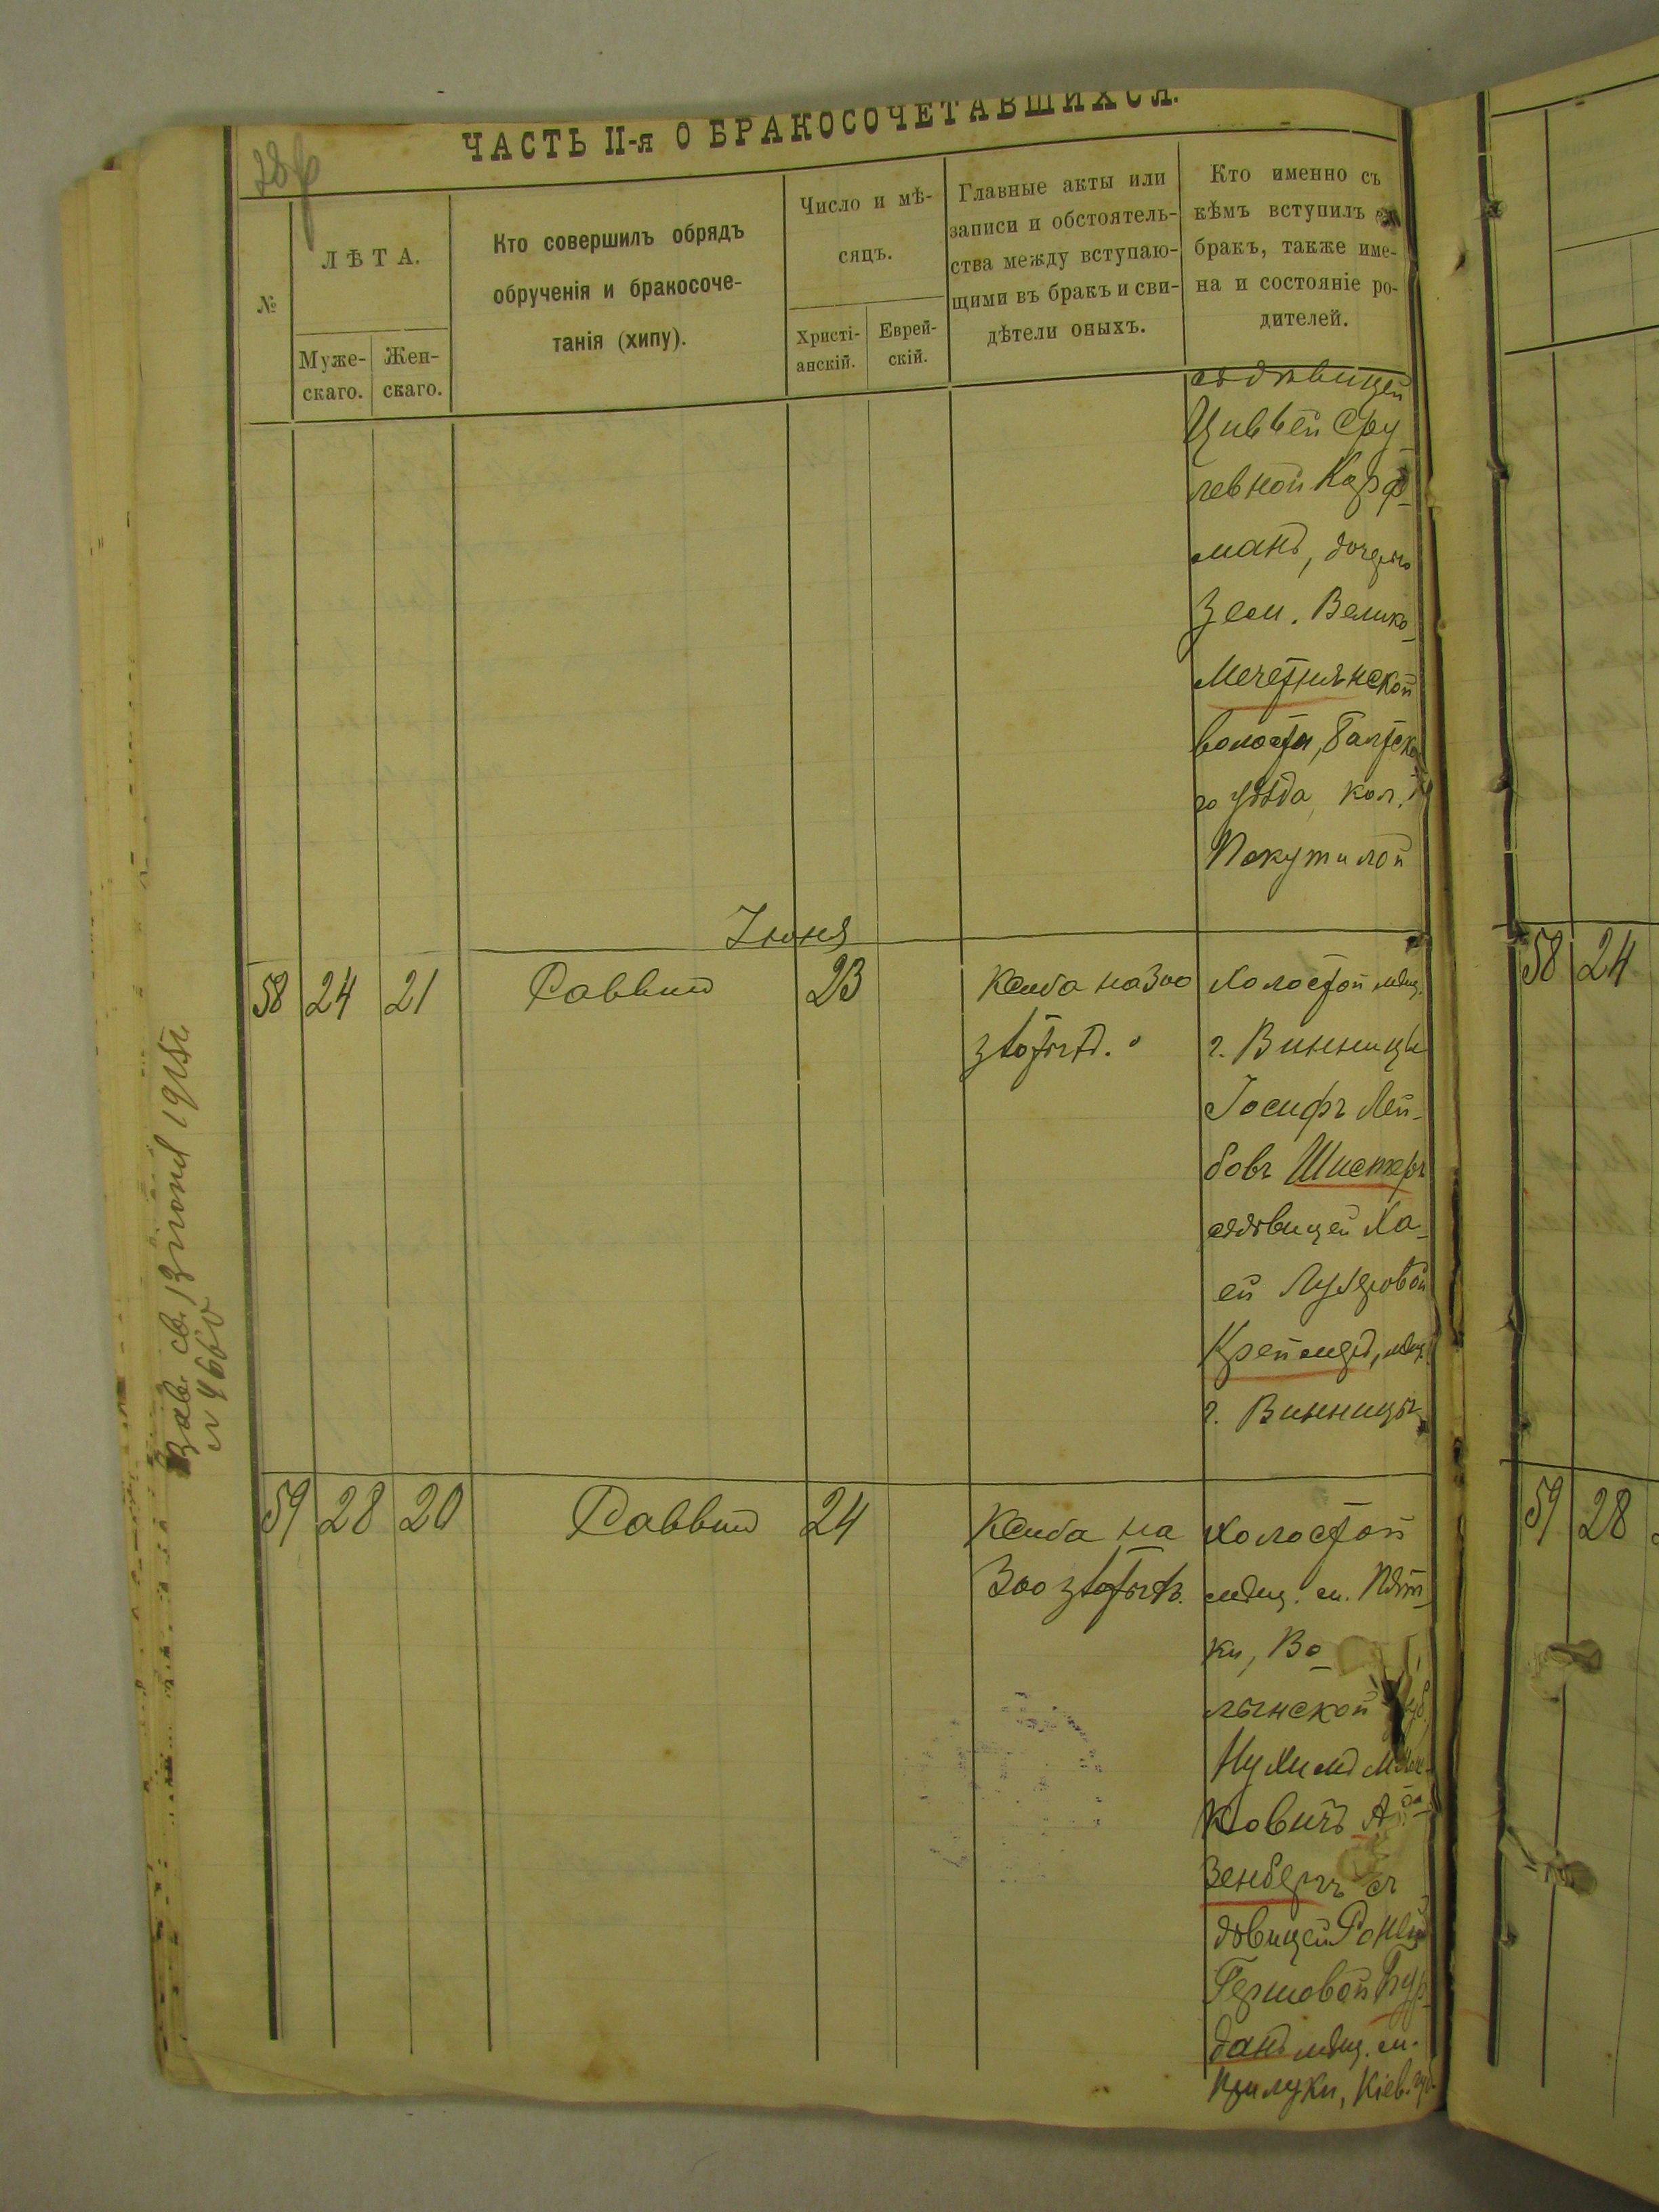 ЧАСТЬ II-я О БРАКОСОЧЕТАВШИХСЯ.
№
ЛѢТА.
Муже-
скаго.
Жен-
скаго.
Кто совершилъ обрядъ
обрученія и бракосоче-
танія (хипу).
Число и мѣ-
сяцъ.
Христі-
анскій.
Еврей-
скій.
Главные акты или
записи и обстоятель-
ства между вступаю-
щими въ бракъ и сви-
дѣтели оныхъ.
Кто именно съ
кѣмъ вступилъ
бракъ, также име-
на и состояніе ро-
дителей.
съ дѣвицей
Цивьей Сру
левной Карф
манъ, дочерью
Зем. Велико
Мечетнянской
волости, Балтска
го уѣзда, кол.
Покутилой
Іюня
58 24 21 Раввинъ 23
Ксиба на 300
злотыхъ.
Холостой мѣщ.
г. Винницы
Іосифъ Лей-
бовъ Шистеръ
съ дѣвицей Ха-
ей
мѣщ.
г. Винницы
59 28 20 Раввинъ 24
Ксиба на
300 злотыхъ.
Холостой
мѣщ. м. Пят-
ки, Во-
лынской губ.
Нухимъ
ковичъ
зенбергъ съ
дѣвицей
Гершовой Бур
данъ мѣщ. м.
Прилуки, Кіев. губ.
58 24
59 28